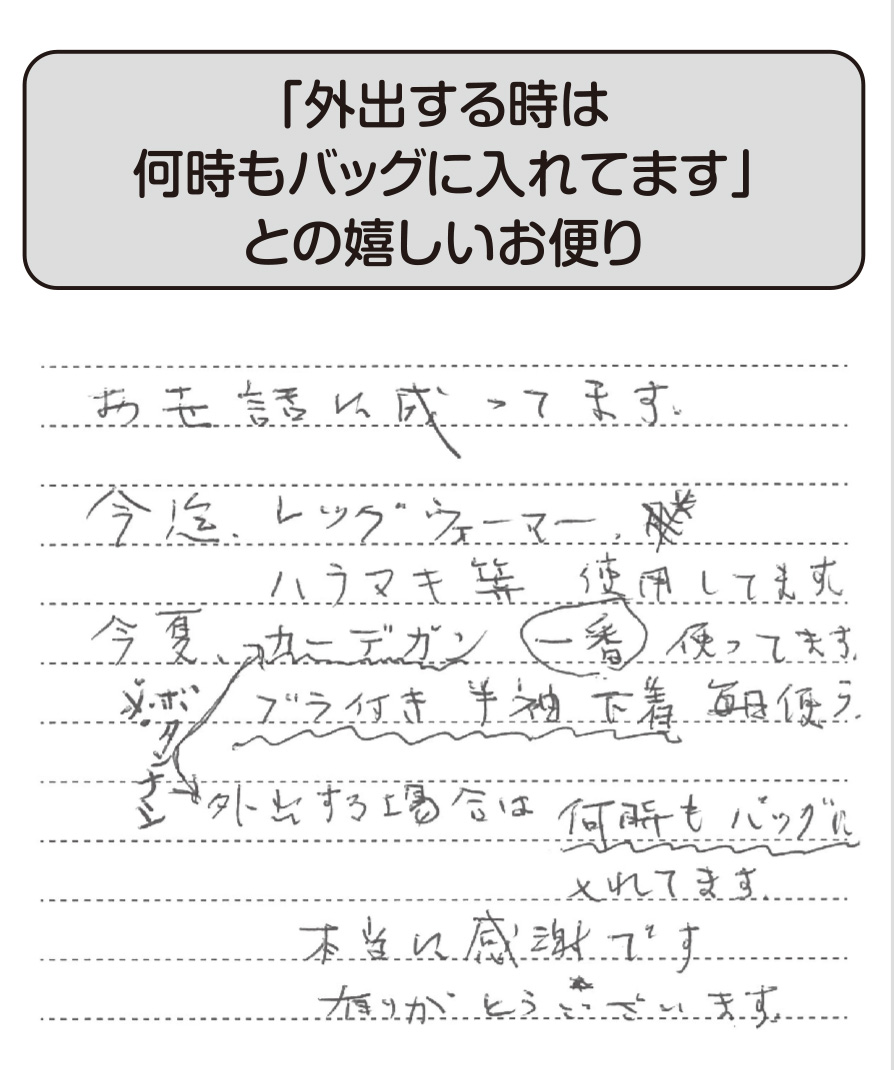 「外出する時は
何時もバッグに入れてます」
との嬉しいお便り
お世話に成ってます。
今迄、レッグウォーマー、
ハラマキ等 使用してます
今夏、カーデガン 一番 使ってます。
※ボタンナシ
ブラ付き 半袖 下着 毎日使う。
外出する場合は 何時も バッグに
入れてます。
本当に 感謝です
有りがとうございます。